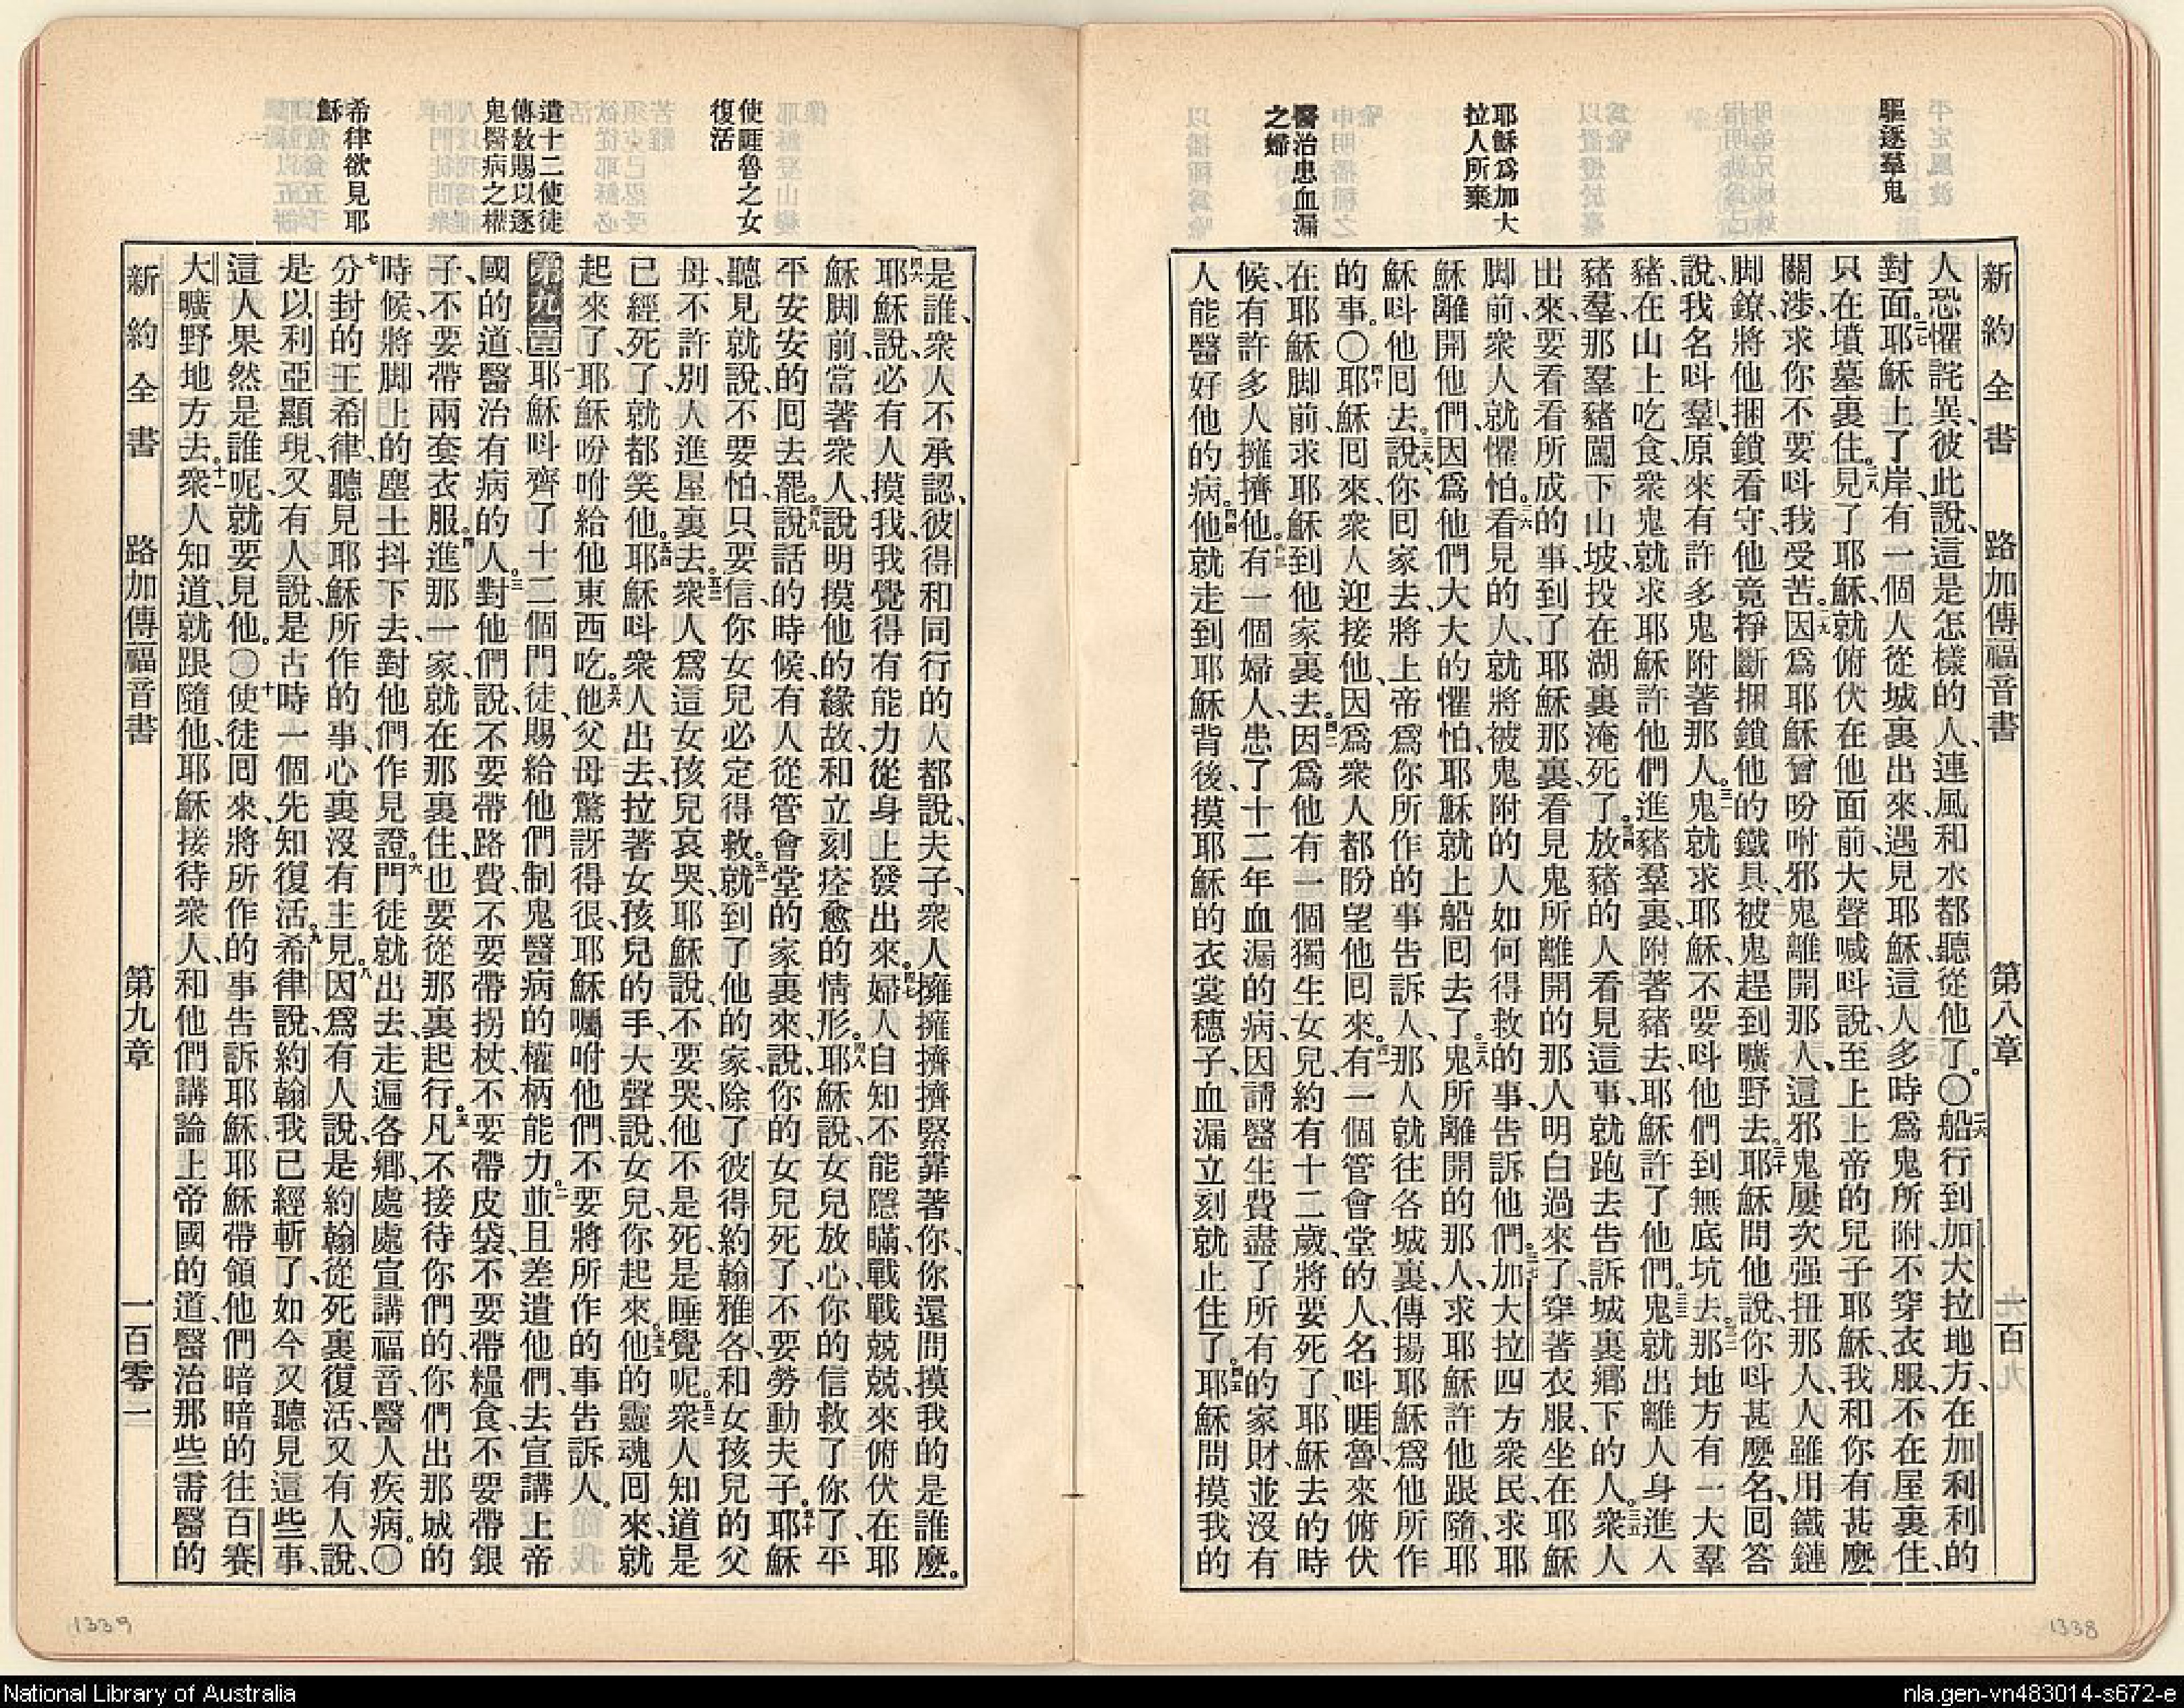 驅逐羣鬼
耶穌爲加大
拉人所棄
醫治患血漏
之婦
新約全書 路加傳福音書 第八章 一百
人恐懼詫異、彼此說、這是怎樣的人、連風和水都聽從他了。〇二六船行到加大拉地方、在加利利的
對面。二七耶穌上了岸、有一個人從城裏出來、遇見耶穌、這人多時爲鬼所附、不穿衣服、不在屋裏住、
只在墳墓裏住。二八見了耶穌、就俯伏在他面前、大聲喊呌說、至上上帝的兒子耶穌、我和你有甚麼
關涉、求你不要呌我受苦。二九因爲耶穌曾吩咐邪鬼離開那人、這邪鬼屢次强扭那人、人雖用鐵鏈
脚鐐、將他捆鎖看守、他竟掙斷捆鎖他的鐵具、被鬼趕到曠野去。三十耶穌問他說、你呌甚麼名、囘答
說、我名呌羣、原來有許多鬼附著那人。三一鬼就求耶穌、不要呌他們到無底坑去。三二那地方有一大羣
豬、在山上吃食、衆鬼就求耶穌許他們進豬羣裏、附著豬去、耶穌許了他們。三三鬼就出離人身、進入
豬羣、那羣豬闖下山坡、投在湖裏淹死了。三四放豬的人看見這事、就跑去告訴城裏鄉下的人。三五衆人
出來、要看看所成的事、到了耶穌那裏、看見鬼所離開的那人、明白過來了、穿著衣服、坐在耶穌
脚前、衆人就懼怕。三六看見的人、就將被鬼附的人如何得救的事、告訴他們。三七加大拉四方衆民、求耶
穌離開他們、因爲他們大大的懼怕、耶穌就上船囘去了。三八鬼所離開的那人、求耶穌許他跟隨、耶
穌呌他囘去、三九說、你囘家去、將上帝爲你所作的事告訴人、那人就往各城裏、傳揚耶穌爲他所作
的事。〇四十耶穌囘來、衆人迎接他、因爲衆人都盼望他囘來。四一有一個管會堂的人、名呌睚魯、來俯伏
在耶穌脚前、求耶穌到他家裏去。四二因爲他有一個獨生女兒、約有十二歲、將要死了、耶穌去的時
候、有許多人擁擠他。四三有一個婦人、患了十二年血漏的病、因請醫生費盡了所有的家財、並沒有
人能醫好他的病。四四他就走到耶穌背後、摸耶穌的衣裳穗子、血漏立刻就止住了。四五耶穌問摸我的
1338
使睚魯之女
復活
遣十二使徒
傳敎賜以逐
鬼醫病之權
希律欲見耶
穌
是誰、衆人不承認、彼得和同行的人都說、夫子、衆人擁擁擠擠緊靠著你、你還問摸我的是誰麼。
四六耶穌說、必有人摸我、我覺得有能力從身上發出來。四七婦人自知不能隱瞞、戰戰兢兢、來俯伏在耶
穌脚前、當著衆人、說明摸他的緣故、和立刻痊愈的情形。四八耶穌說、女兒放心、你的信救了你了、平
平安安的囘去罷。四九說話的時候、有人從管會堂的家裏來、說、你的女兒死了、不要勞動夫子。五十耶穌
聽見就說、不要怕、只要信、你女兒必定得救。五一就到了他的家、除了彼得約翰雅各、和女孩兒的父
母、不許別人進屋裏去。五二衆人爲這女孩兒哀哭、耶穌說、不要哭、他不是死、是睡覺呢。五三衆人知道是
已經死了、就都笑他。五四耶穌呌衆人出去、拉著女孩兒的手、大聲說、女兒、你起來。五五他的靈魂回來、就
起來了、耶穌吩咐給他東西吃。五六他父母驚訝得很、耶穌囑咐他們、不要將所作的事告訴人。
第九章 一耶穌呌齊了十二個門徒、賜給他們制鬼醫病的權柄能力。二並且差遣他們、去宣講上帝
國的道、醫治有病的人。三對他們說、不要帶路費、不要帶拐杖、不要帶皮袋、不要帶糧食、不要帶銀
子、不要帶兩套衣服。四進那一家、就在那裏住、也要從那裏起行。五凡不接待你們的、你們出那城的
時候、將脚上的塵土抖下去、對他們作見證。六門徒就出去、走遍各鄉、處處宣講福音、醫人疾病。〇
七分封的王希律、聽見耶穌所作的事、心裏沒有主見。八因爲有人說、是約翰從死裏復活、又有人說、
是以利亞顯現、又有人說、是古時一個先知復活。九希律說、約翰我已經斬了、如今又聽見這些事、
這人果然是誰呢、就要見他。〇十使徒囘來、將所作的事告訴耶穌、耶穌帶領他們暗暗的往百賽
大曠野地方去。十一衆人知道、就跟隨他、耶穌接待衆人、和他們講論上帝國的道、醫治那些需醫的
新約全書 路加傳福音書 第九章 一百零一
1339
National Library of Australia
nla.gen-vn483014-s672-e